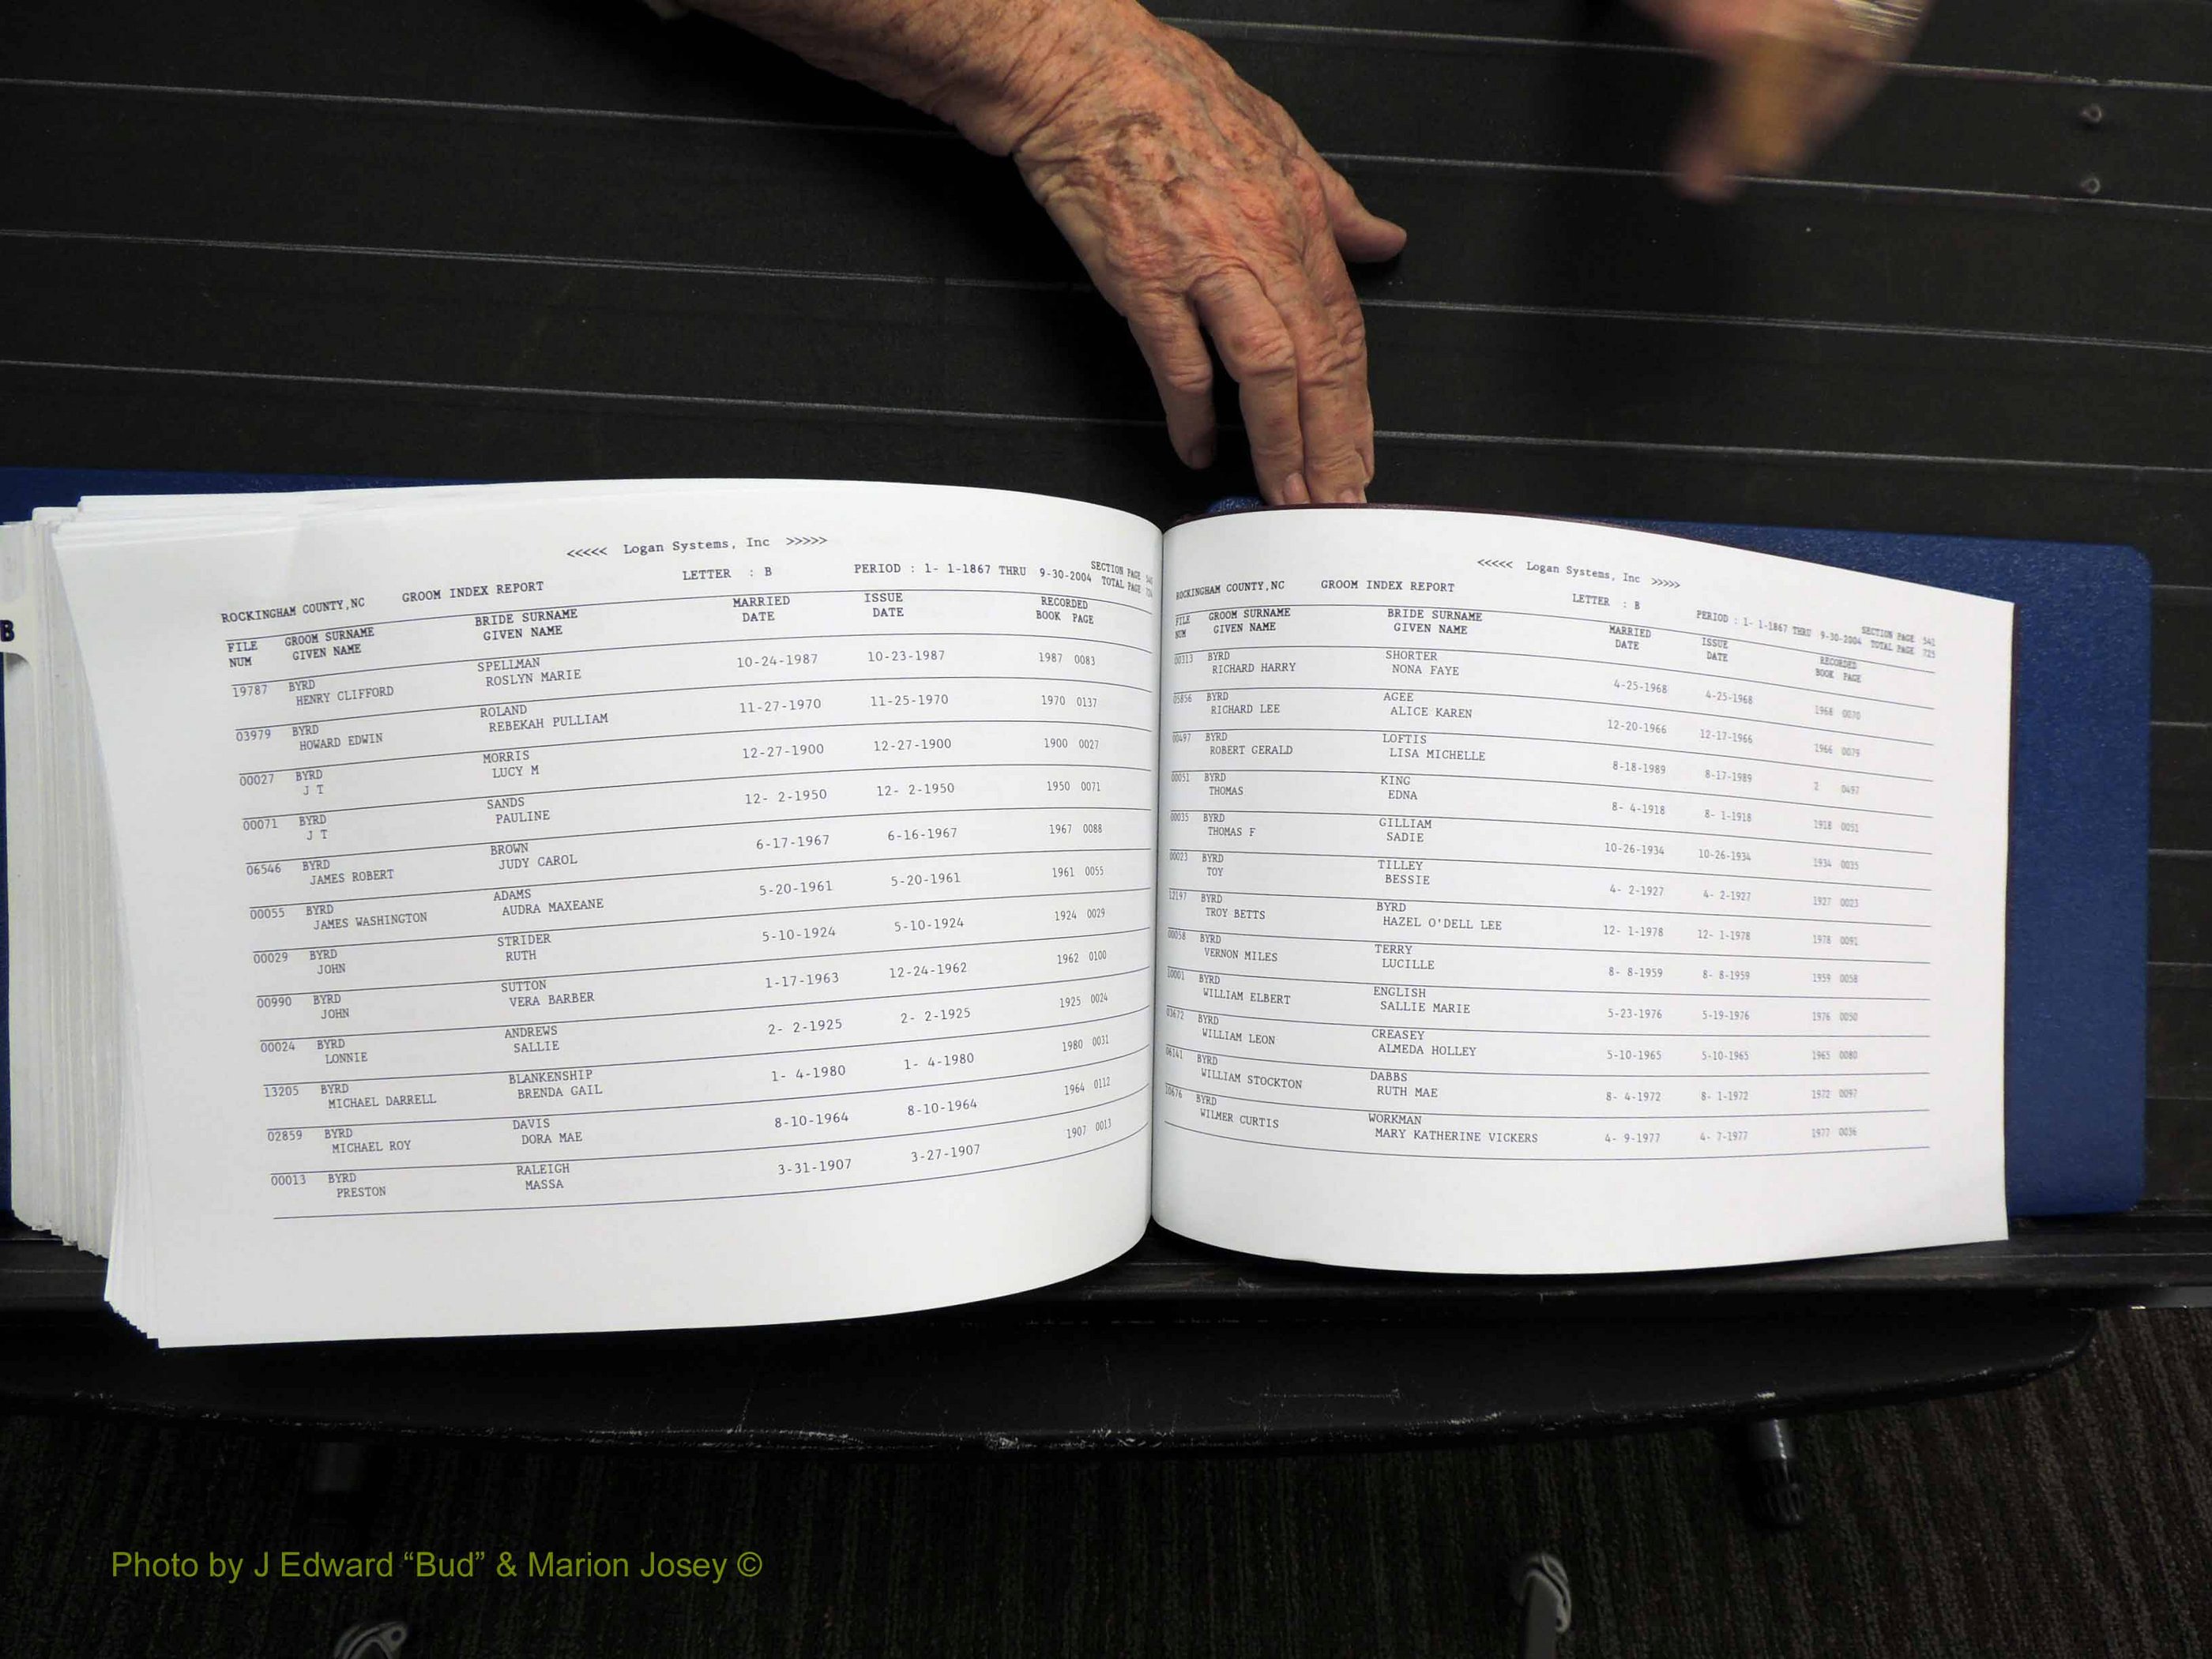 B
<<<<< Logan Systems, Inc >>>>>
ROCKINGHAM COUNTY,NC GROOM INDEX REPORT LETTER : B PERIOD : 1- 1-1867 THRU 9-30-2004 SECTION PAGE
TOTAL PAGE
FILE GROOM SURNAME BRIDE SURNAME MARRIED ISSUE RECORDED
NUM GIVEN NAME GIVEN NAME DATE DATE BOOK PAGE
19787 BYRD SPELLMAN 10-24-1987 10-23-1987 1987 0083
HENRY CLIFFORD ROSLYN MARIE
03979 BYRD ROLAND 11-27-1970 11-25-1970 1970 0137
HOWARD EDWIN REBEKAH PULLIAM
00027 BYRD MORRIS 12-27-1900 12-27-1900 1900 0027
J T LUCY M
00071 BYRD SANDS 12- 2-1950 12- 2-1950 1950 0071
J T PAULINE
06546 BYRD BROWN 6-17-1967 6-16-1967 1967 0088
JAMES ROBERT JUDY CAROL
00055 BYRD ADAMS 5-20-1961 5-20-1961 1961 0055
JAMES WASHINGTON AUDRA MAXEANE
00029 BYRD STRIDER 5-10-1924 5-10-1924 1924 0029
JOHN RUTH
00990 BYRD SUTTON 1-17-1963 12-24-1962 1962 0100
JOHN VERA BARBER
00024 BYRD ANDREWS 2- 2-1925 2- 2-1925 1925 0024
LONNIE SALLIE
13205 BYRD BLANKENSHIP 1- 4-1980 1- 4-1980 1980 0031
MICHAEL DARRELL BRENDA GAIL
02859 BYRD DAVIS 8-10-1964 8-10-1964 1964 0112
MICHAEL ROY DORA MAE
00013 BYRD RALEIGH 3-31-1907 3-27-1907 1907 0013
PRESTON MASSA
<<<<< Logan Systems, Inc >>>>>
ROCKINGHAM COUNTY,NC GROOM INDEX REPORT LETTER : B PERIOD : 1- 1-1867 THRU 9-30-2004 SECTION PAGE 541
TOTAL PAGE 725
FILE GROOM SURNAME BRIDE SURNAME MARRIED ISSUE RECORDED
NUM GIVEN NAME GIVEN NAME DATE DATE BOOK PAGE
00313 BYRD SHORTER 4-25-1968 4-25-1968 1968 0070
RICHARD HARRY NONA FAYE
05856 BYRD AGEE 12-20-1966 12-17-1966 1966 0079
RICHARD LEE ALICE KAREN
00497 BYRD LOFTIS 8-18-1989 8-17-1989 2 0497
ROBERT GERALD LISA MICHELLE
00051 BYRD KING 8- 4-1918 8- 1-1918 1918 0051
THOMAS EDNA
00035 BYRD GILLIAM 10-26-1934 10-26-1934 1934 0035
THOMAS F SADIE
00023 BYRD TILLEY 4- 2-1927 4- 2-1927 1927 0023
TOY BESSIE
12197 BYRD BYRD 12- 1-1978 12- 1-1978 1978 0091
TROY BETTS HAZEL O'DELL LEE
00058 BYRD TERRY 8- 8-1959 8- 8-1959 1959 0058
VERNON MILES LUCILLE
10001 BYRD ENGLISH 5-23-1976 5-19-1976 1976 0050
WILLIAM ELBERT SALLIE MARIE
03672 BYRD CREASEY 5-10-1965 5-10-1965 1965 0080
WILLIAM LEON ALMEDA HOLLEY
06141 BYRD DABBS 8- 4-1972 8- 1-1972 1972 0097
WILLIAM STOCKTON RUTH MAE
10676 BYRD WORKMAN 4- 9-1977 4- 7-1977 1977 0036
WILMER CURTIS MARY KATHERINE VICKERS
Photo by J Edward “Bud” & Marion Josey ©